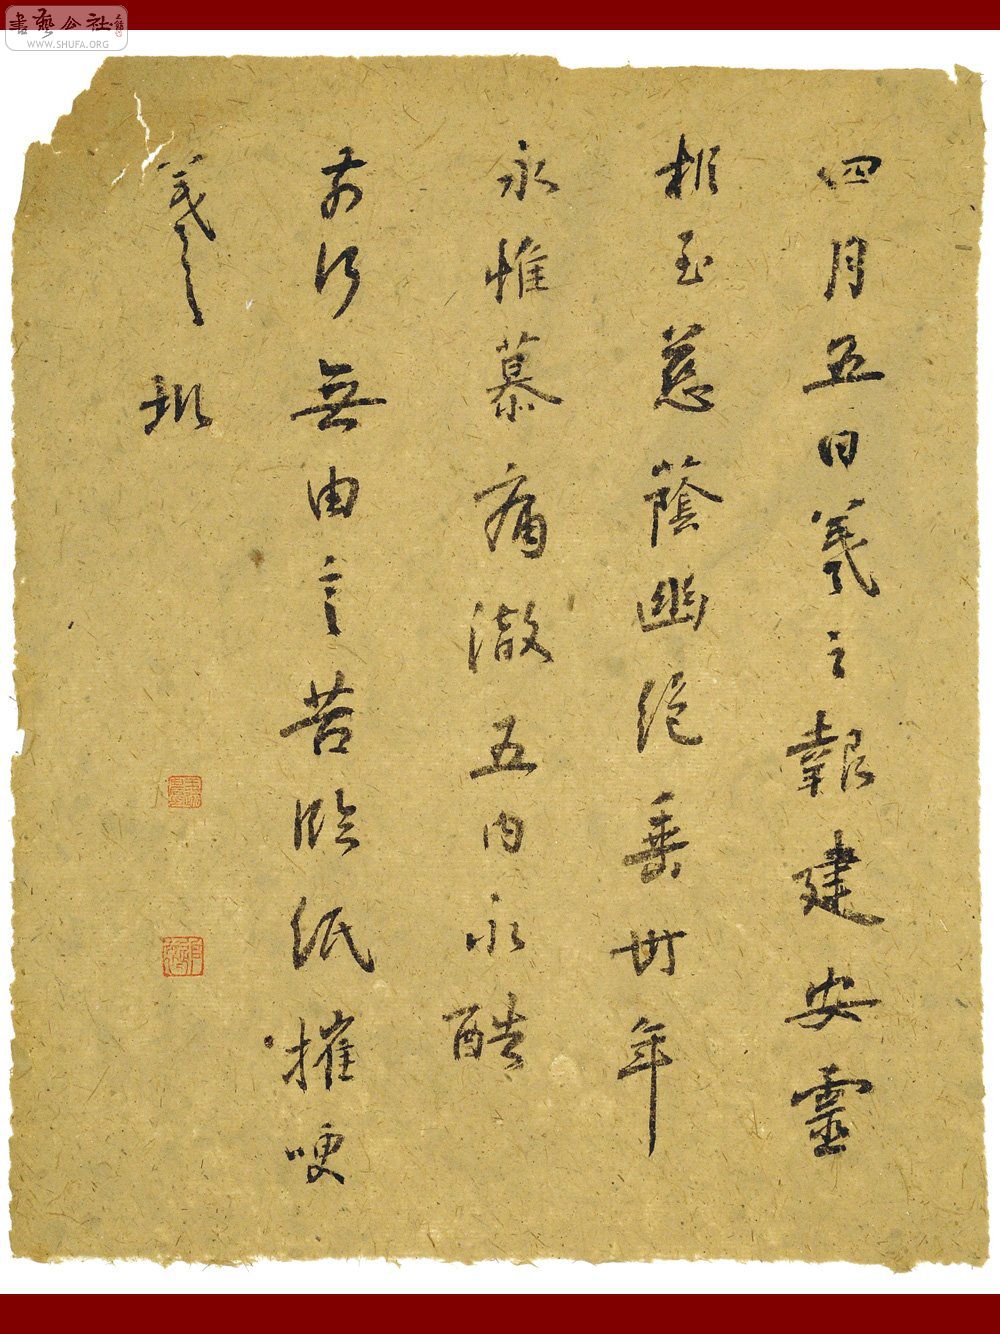 四月五日羲之報建安靈
柩至慈蔭幽絕垂卅年
永惟慕痛徹五內永酷
奈何無由言苦臨紙摧哽
羲之報
書藝公社
WWW.SHUFA.ORG